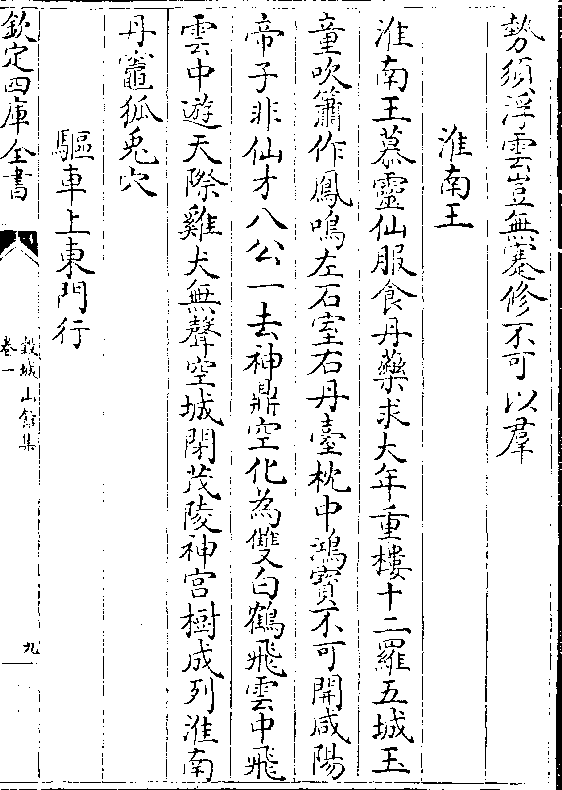 勢須浮雲豈無蹇修不可以羣
淮南王
淮南王慕靈仙服食丹藥求大年重樓十二羅五城玉
童吹簫作鳳鳴左石室右丹臺枕中鴻寶不可開咸陽
帝子非仙才八公一去神鼎空化為雙白鶴飛雲中飛
雲中遊天際雞犬無聲空城閉茂陵神宫樹成列淮南
丹竈狐兎穴
驅車上東門行
欽定四庫全書
穀城山館集
卷一
九